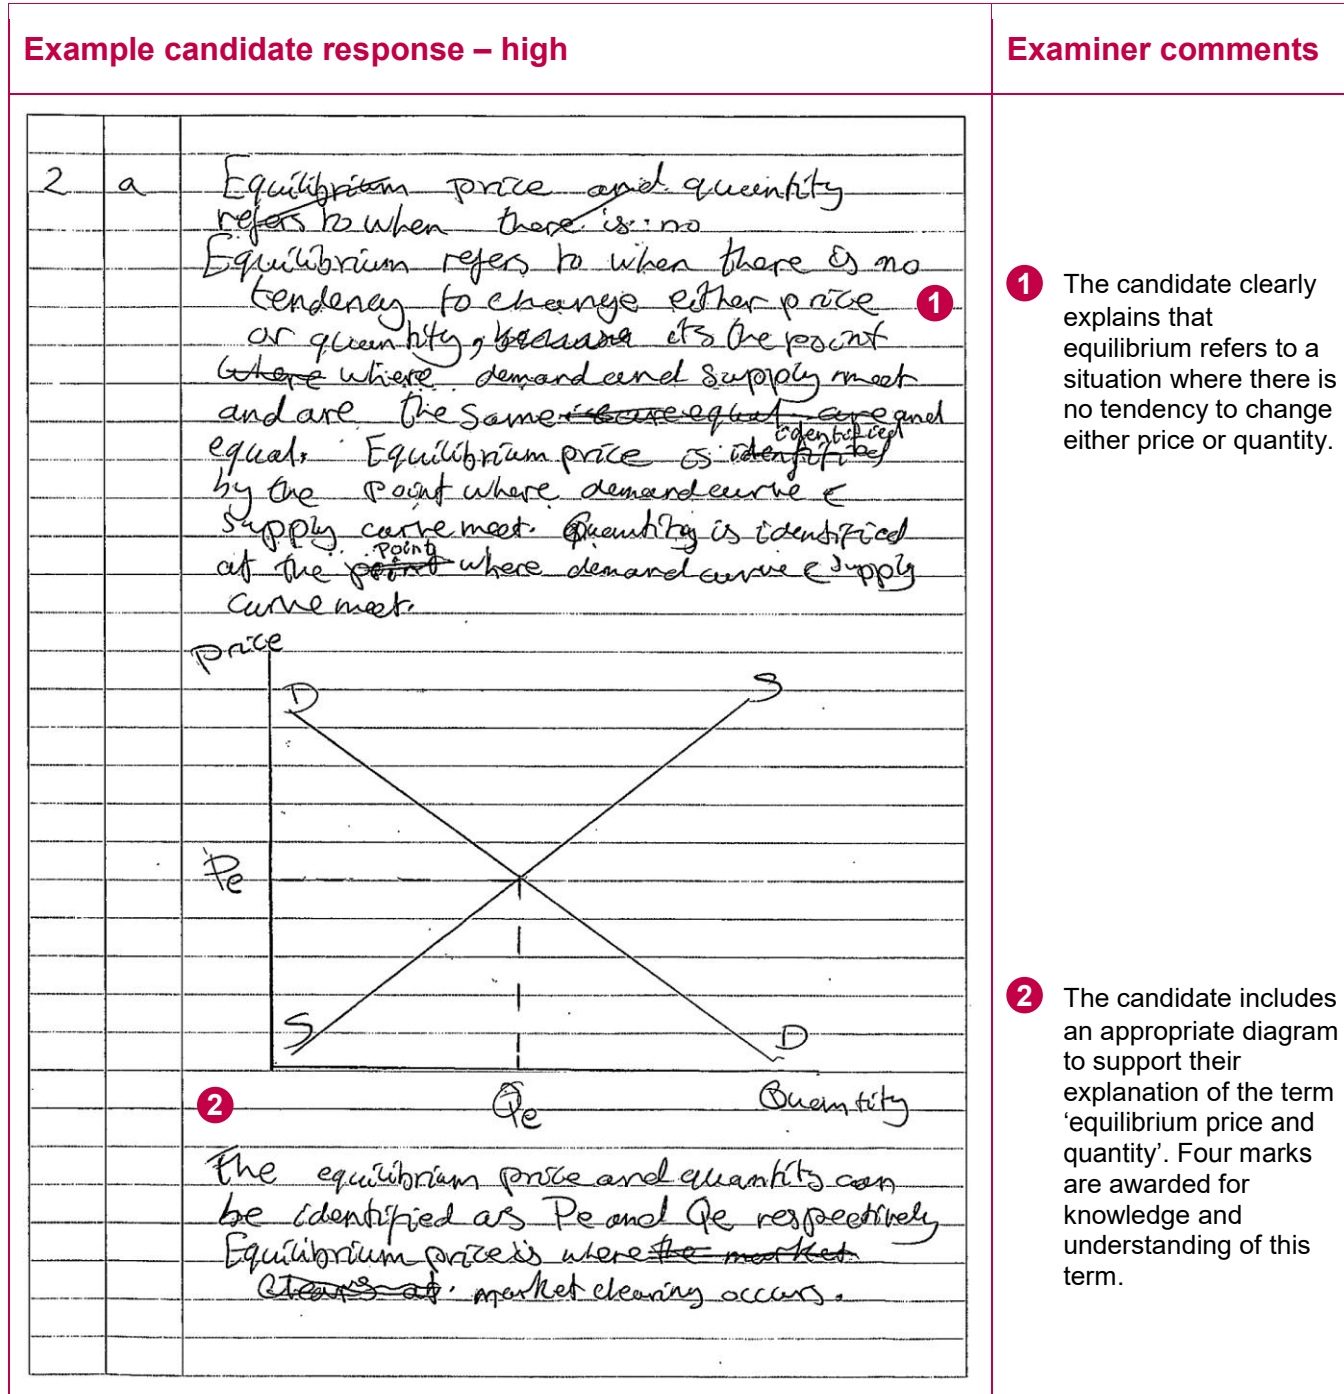 Example candidate response – high
Examiner comments
2 a Equilibrium price and quantity
refers to when there is no
Equilibrium refers to when there is no
tendency to change either price 1
or quantity, because its the point
where where demand and supply meet
and are the same are equal are and
identified
equal. Equilibrium price is identified
by the point where demand curve &
supply curve meet. Quantity is identified
point
at the point where demand curve & supply
curve meet.
price
D S
Pe
S D
2 Qe Quantity
The equilibrium price and quantity can
be identified as Pe and Qe respectively
Equilibrium price is where the market
clears at. market clearing occurs.
1 The candidate clearly
explains that
equilibrium refers to a
situation where there is
no tendency to change
either price or quantity.
2 The candidate includes
an appropriate diagram
to support their
explanation of the term
‘equilibrium price and
quantity’. Four marks
are awarded for
knowledge and
understanding of this
term.